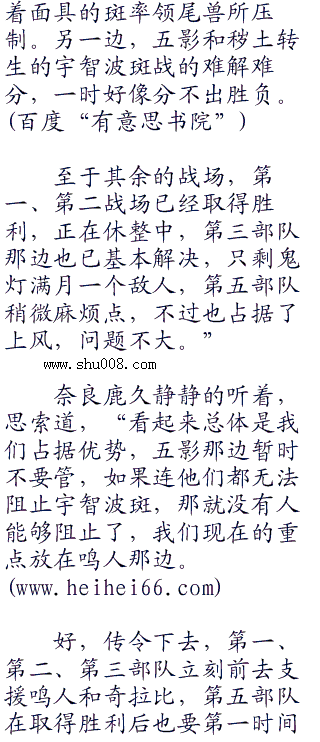 着面具的斑率领尾兽所压
制。另一边，五影和秽土转
生的宇智波斑战的难解难
分，一时好像分不出胜负。
(百度“有意思书院”)
至于其余的战场，第
一、第二战场已经取得胜
利，正在休整中，第三部队
那边也已基本解决，只剩鬼
灯满月一个敌人，第五部队
稍微麻烦点，不过也占据了
上风，问题不大。”
www.shu008.com
奈良鹿久静静的听着，
思索道，“看起来总体是我
们占据优势，五影那边暂时
不要管，如果连他们都无法
阻止宇智波斑，那就没有人
能够阻止了，我们现在的重
点放在鸣人那边。
(www.heihei66.com)
好，传令下去，第一、
第二、第三部队立刻前去支
援鸣人和奇拉比，第五部队
在取得胜利后也要第一时间